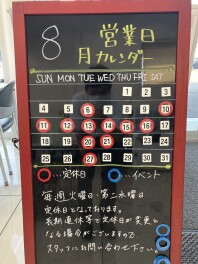 8 営業日
月カレンダー
SUN MON TUE WED THU FRI SAT
1 2 3
4 5 6 7 8 9 10
11 12 13 14 15 16 17
18 19 20 21 22 23 24
25 26 27 28 29 30 31
…定休日 …イベント
毎週火曜日・第二水曜日
定休日となっております。
長期連休等で定休日が変更と
なる場合がございますので
スタッフにお問い合わせ下さい。